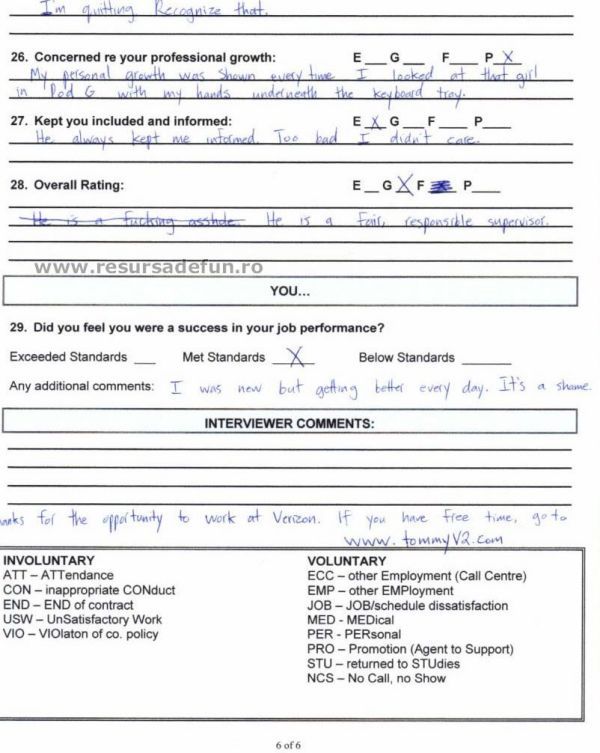 I'm quitting. Recognize that.
26. Concerned re your professional growth: E ___ G ___ F ___ P X
My personal growth was shown every time I looked at that girl
in Pod G with my hands underneath the keyboard tray.
27. Kept you included and informed: E X G ___ F ___ P ___
He always kept me informed. Too bad I didn't care.
28. Overall Rating: E __ G X F P ___
He is a fucking asshole. He is a fair, responsible supervisor.
www.resursadefun.ro
YOU...
29. Did you feel you were a success in your job performance?
Exceeded Standards ___ Met Standards X Below Standards ___
Any additional comments: I was new but getting better every day. It's a shame.
INTERVIEWER COMMENTS:
anks for the opportunity to work at Verizon. If you have free time, go to
www.tommyV2.com
INVOLUNTARY
ATT – ATTendance
CON – inappropriate CONduct
END – END of contract
USW – UnSatisfactory Work
VIO – VIOlaton of co. policy
VOLUNTARY
ECC – other Employment (Call Centre)
EMP – other EMPloyment
JOB – JOB/schedule dissatisfaction
MED - MEDical
PER - PERsonal
PRO – Promotion (Agent to Support)
STU – returned to STUdies
NCS – No Call, no Show
6 of 6